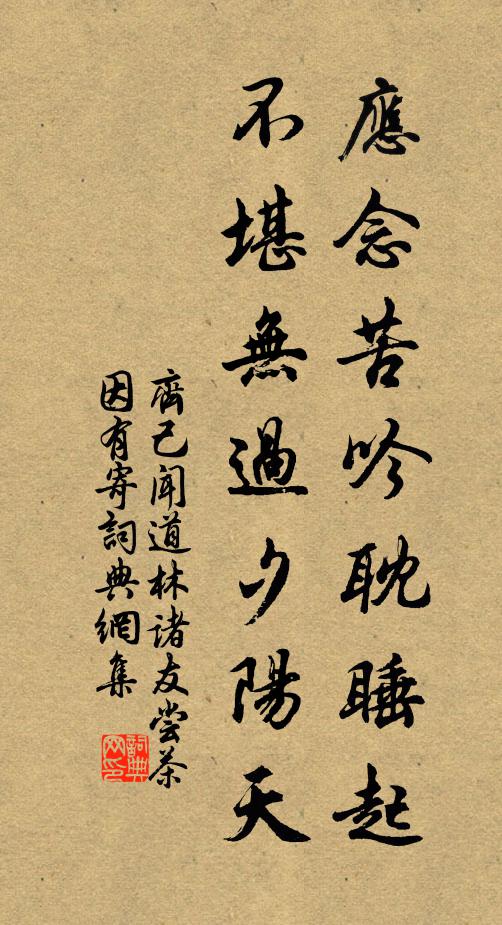 應念苦吟耽睡起
不堪無過夕陽天
齊己聞道林诸友尝茶
因有寄詞典網集
詞典
网印